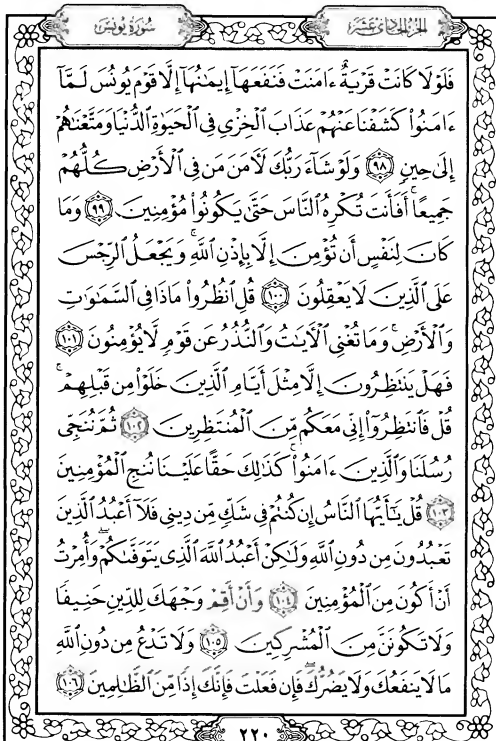 سُورَةُ يُونُسَ
الجُزْءُ الحَادِي عَشَرَ
فَلَوْلَا كَانَتْ قَرْيَةٌ ءَامَنَتْ فَنَفَعَهَآ إِيمَٰنُهَآ إِلَّا قَوْمَ يُونُسَ لَمَّآ
ءَامَنُواْ كَشَفْنَا عَنْهُمْ عَذَابَ ٱلْخِزْىِ فِى ٱلْحَيَوٰةِ ٱلدُّنْيَا وَمَتَّعْنَٰهُمْ
إِلَىٰ حِينٍ ٩٨ وَلَوْ شَآءَ رَبُّكَ لَءَامَنَ مَن فِى ٱلْأَرْضِ كُلُّهُمْ
جَمِيعًا ۚ أَفَأَنتَ تُكْرِهُ ٱلنَّاسَ حَتَّىٰ يَكُونُواْ مُؤْمِنِينَ ٩٩ وَمَا
كَانَ لِنَفْسٍ أَن تُؤْمِنَ إِلَّا بِإِذْنِ ٱللَّهِ ۚ وَيَجْعَلُ ٱلرِّجْسَ
عَلَى ٱلَّذِينَ لَا يَعْقِلُونَ ١٠٠ قُلِ ٱنظُرُواْ مَاذَا فِى ٱلسَّمَٰوَٰتِ
وَٱلْأَرْضِ ۚ وَمَا تُغْنِى ٱلْءَايَٰتُ وَٱلنُّذُرُ عَن قَوْمٍ لَّا يُؤْمِنُونَ ١٠١
فَهَلْ يَنتَظِرُونَ إِلَّا مِثْلَ أَيَّامِ ٱلَّذِينَ خَلَوْاْ مِن قَبْلِهِمْ ۚ
قُلْ فَٱنتَظِرُوٓاْ إِنِّى مَعَكُم مِّنَ ٱلْمُنتَظِرِينَ ١٠٢ ثُمَّ نُنَجِّى
رُسُلَنَا وَٱلَّذِينَ ءَامَنُواْ ۚ كَذَٰلِكَ حَقًّا عَلَيْنَا نُنجِ ٱلْمُؤْمِنِينَ
١٠٣ قُلْ يَٰٓأَيُّهَا ٱلنَّاسُ إِن كُنتُمْ فِى شَكٍّ مِّن دِينِى فَلَآ أَعْبُدُ ٱلَّذِينَ
تَعْبُدُونَ مِن دُونِ ٱللَّهِ وَلَٰكِنْ أَعْبُدُ ٱللَّهَ ٱلَّذِى يَتَوَفَّىٰكُمْ ۖ وَأُمِرْتُ
أَنْ أَكُونَ مِنَ ٱلْمُؤْمِنِينَ ١٠٤ وَأَنْ أَقِمْ وَجْهَكَ لِلدِّينِ حَنِيفًا
وَلَا تَكُونَنَّ مِنَ ٱلْمُشْرِكِينَ ١٠٥ وَلَا تَدْعُ مِن دُونِ ٱللَّهِ
مَا لَا يَنفَعُكَ وَلَا يَضُرُّكَ ۖ فَإِن فَعَلْتَ فَإِنَّكَ إِذًا مِّنَ ٱلظَّٰلِمِينَ ١٠٦
٢٢٠